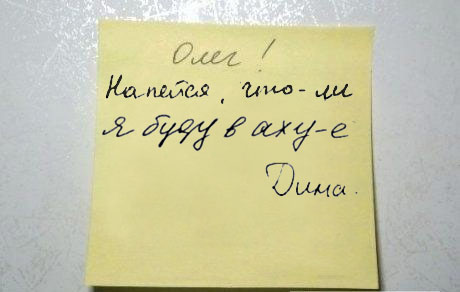 Олег!
Напейся, что-ли
я буду в аху-е
Дима.